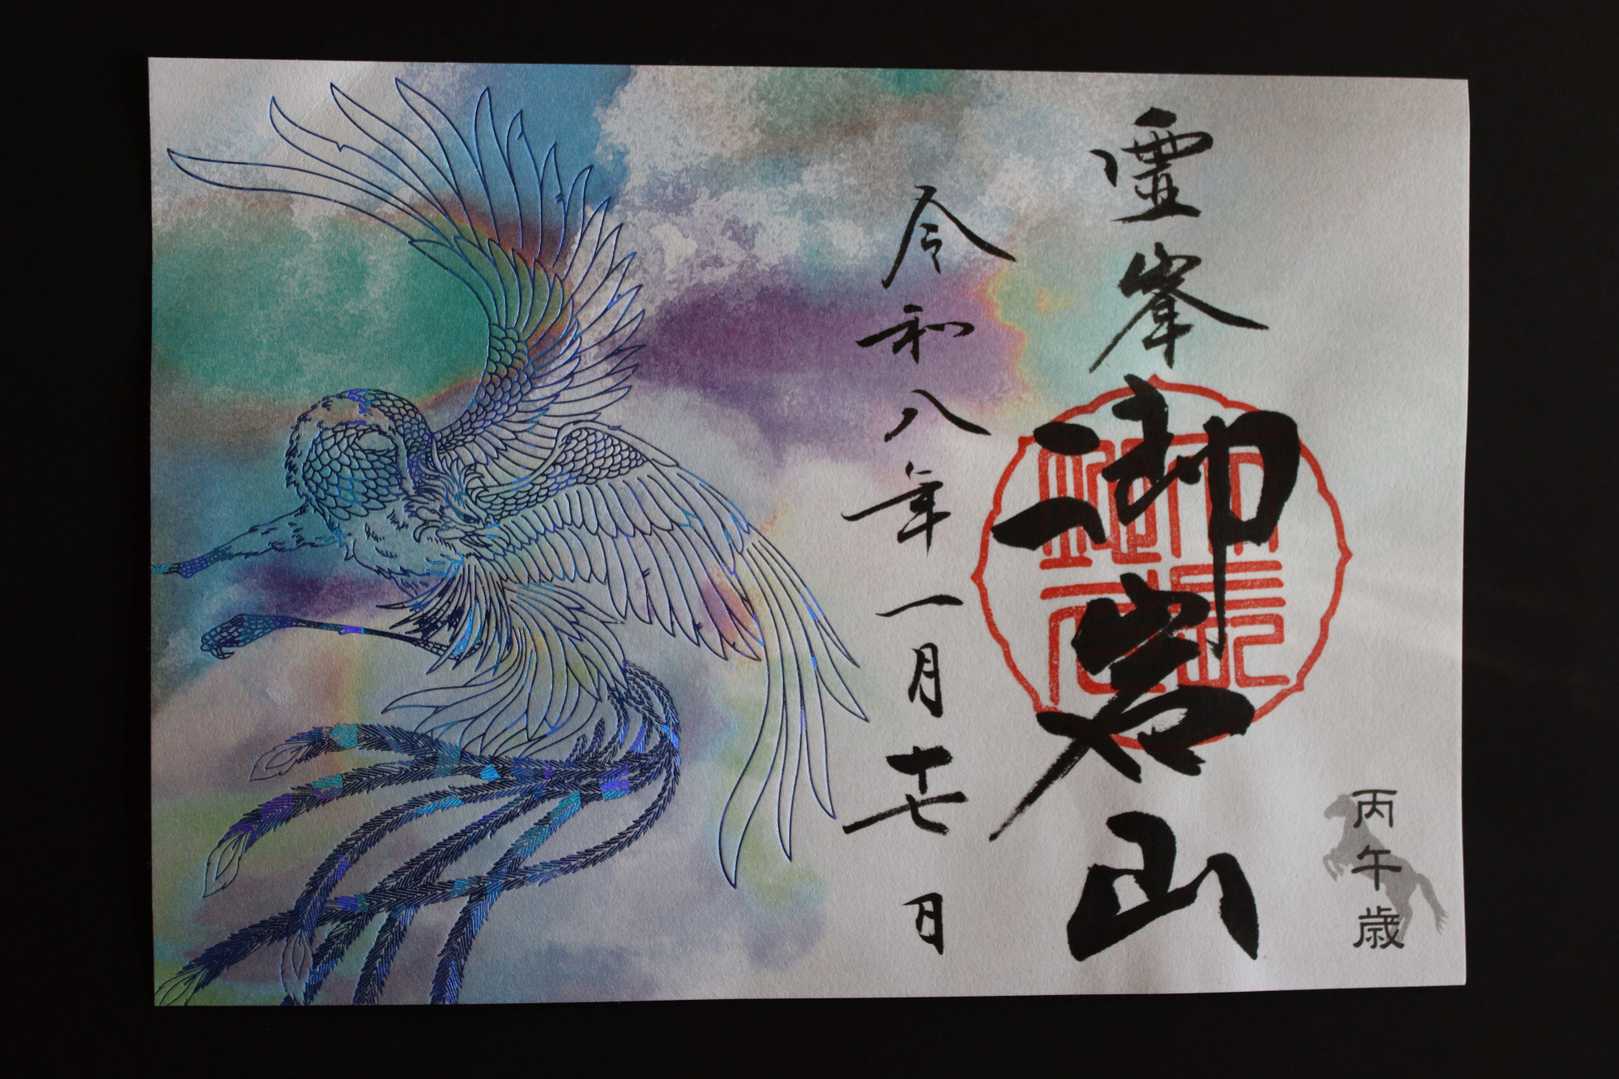 丙午歳
霊峯
御岩山
令和八年一月十七日